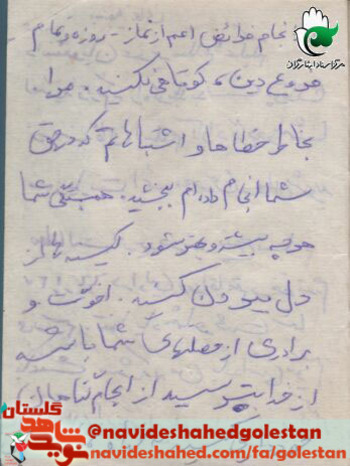 انجام فرائض اعم از نماز - روزه و تمام
فروع دین، کوتاهی نکنید. مرا
بخاطر خطاها و اشتباهاتم که در حق
شما انجام داده‌ام ببخشید. همبستگی شما
هرچه بیشتر و بهتر شود. کینه‌ها از
دل بیرون کنید. اخوت و
برادری از فصلهای شما باشد
از خدا بترسید از انجام گناهان
مرکز اسناد ایثارگران
گلستان
نوید شاهد
@navideshahedgolestan
navideshahed.com/fa/golestan